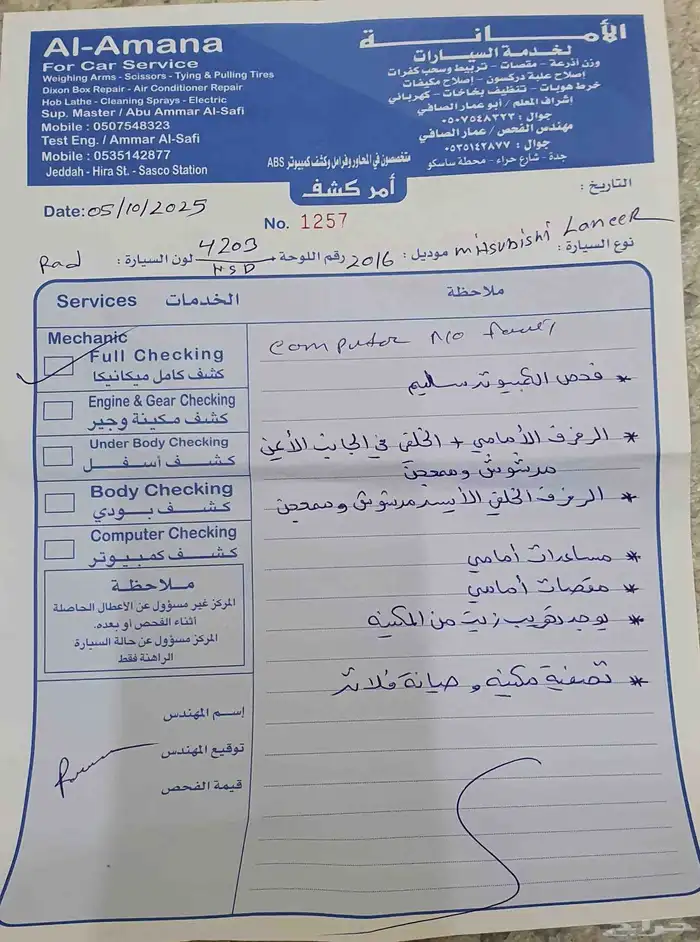 Al-Amana
For Car Service
Weighing Arms - Scissors - Tying & Pulling Tires
Dixon Box Repair - Air Conditioner Repair
Hob Lathe - Cleaning Sprays - Electric
Sup. Master / Abu Ammar Al-Safi
Mobile : 0507548323
Test Eng. / Ammar Al-Safi
Mobile : 0535142877
Jeddah - Hira St. - Sasco Station
الأمـــانـــة
لخدمة السيارات
وزن أذرعة - مقصات - تربيط وسحب كفرات
إصلاح علبة دركسون - إصلاح مكيفات
خرط هوبات - تنظيف بخاخات - كهربائي
إشراف المعلم / أبو عمار الصافي
جوال : ٠٥٠٧٥٤٨٣٢٣
مهندس الفحص / عمار الصافي
جوال : ٠٥٣٥١٤٢٨٧٧
جدة - شارع حراء - محطة ساسكو
متخصصون في المحاور وفرامل وكشف كمبيوتر ABS
أمر كشف
Date: 05/10/2025
التاريخ :
No. 1257
نوع السيارة : mitsubishi Lancer موديل : 2016 رقم اللوحة : 4203 لون السيارة : Rad
HSD
Services الخدمات
ملاحظة
Mechanic
Full Checking
كشف كامل ميكانيكا
Engine & Gear Checking
كشف مكينة وجير
Under Body Checking
كشف أسفل
Body Checking
كشف بودي
Computer Checking
كشف كمبيوتر
ملاحظة
المركز غير مسؤول عن الأعطال الحاصلة
أثناء الفحص أو بعده.
المركز مسؤول عن حالة السيارة
الراهنة فقط
إسم المهندس
توقيع المهندس
قيمة الفحص
Computer No
* فحص الكمبيوتر سليم
* الرفرف الأمامي + الخلفي في الجانب الأيمن
مرشوش وممعجن
* الرفرف الخلفي الأيسر مرشوش وممعجن
* مساعدات أمامي
* مقصات أمامي
* يوجد تهريب زيت من المكينه
* تصفية مكينه و صيانة فلاتر
حراج